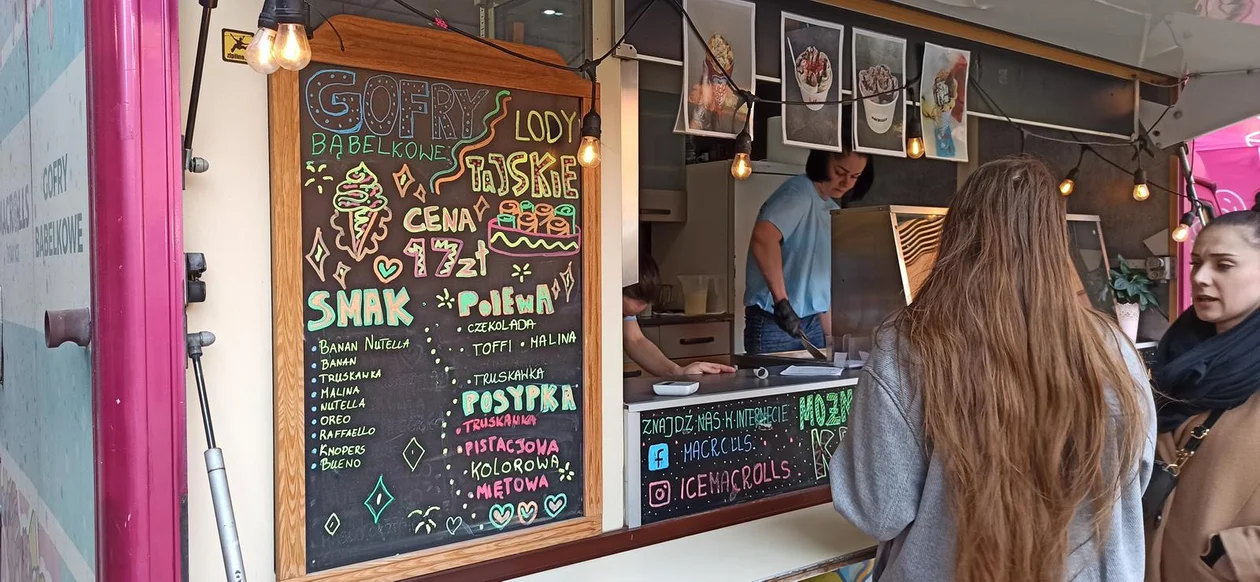 GOFRY
BĄBELKOWE
LODY
TAJSKIE
CENA
17zł
SMAK
BANAN NUTELLA
BANAN
TRUSKAWKA
MALINA
NUTELLA
OREO
RAFFAELLO
KNOPERS
BUENO
POLEWA
CZEKOLADA
TOFFI • MALINA
TRUSKAWKA
POSYPKA
TRUSKAWKA
PISTACJOWA
KOLOROWA
MIĘTOWA
ZNAJDŹ NAS W INTERNECIE
MACROLLS
ICEMACROLLS
GOFRY
BĄBELKOWE